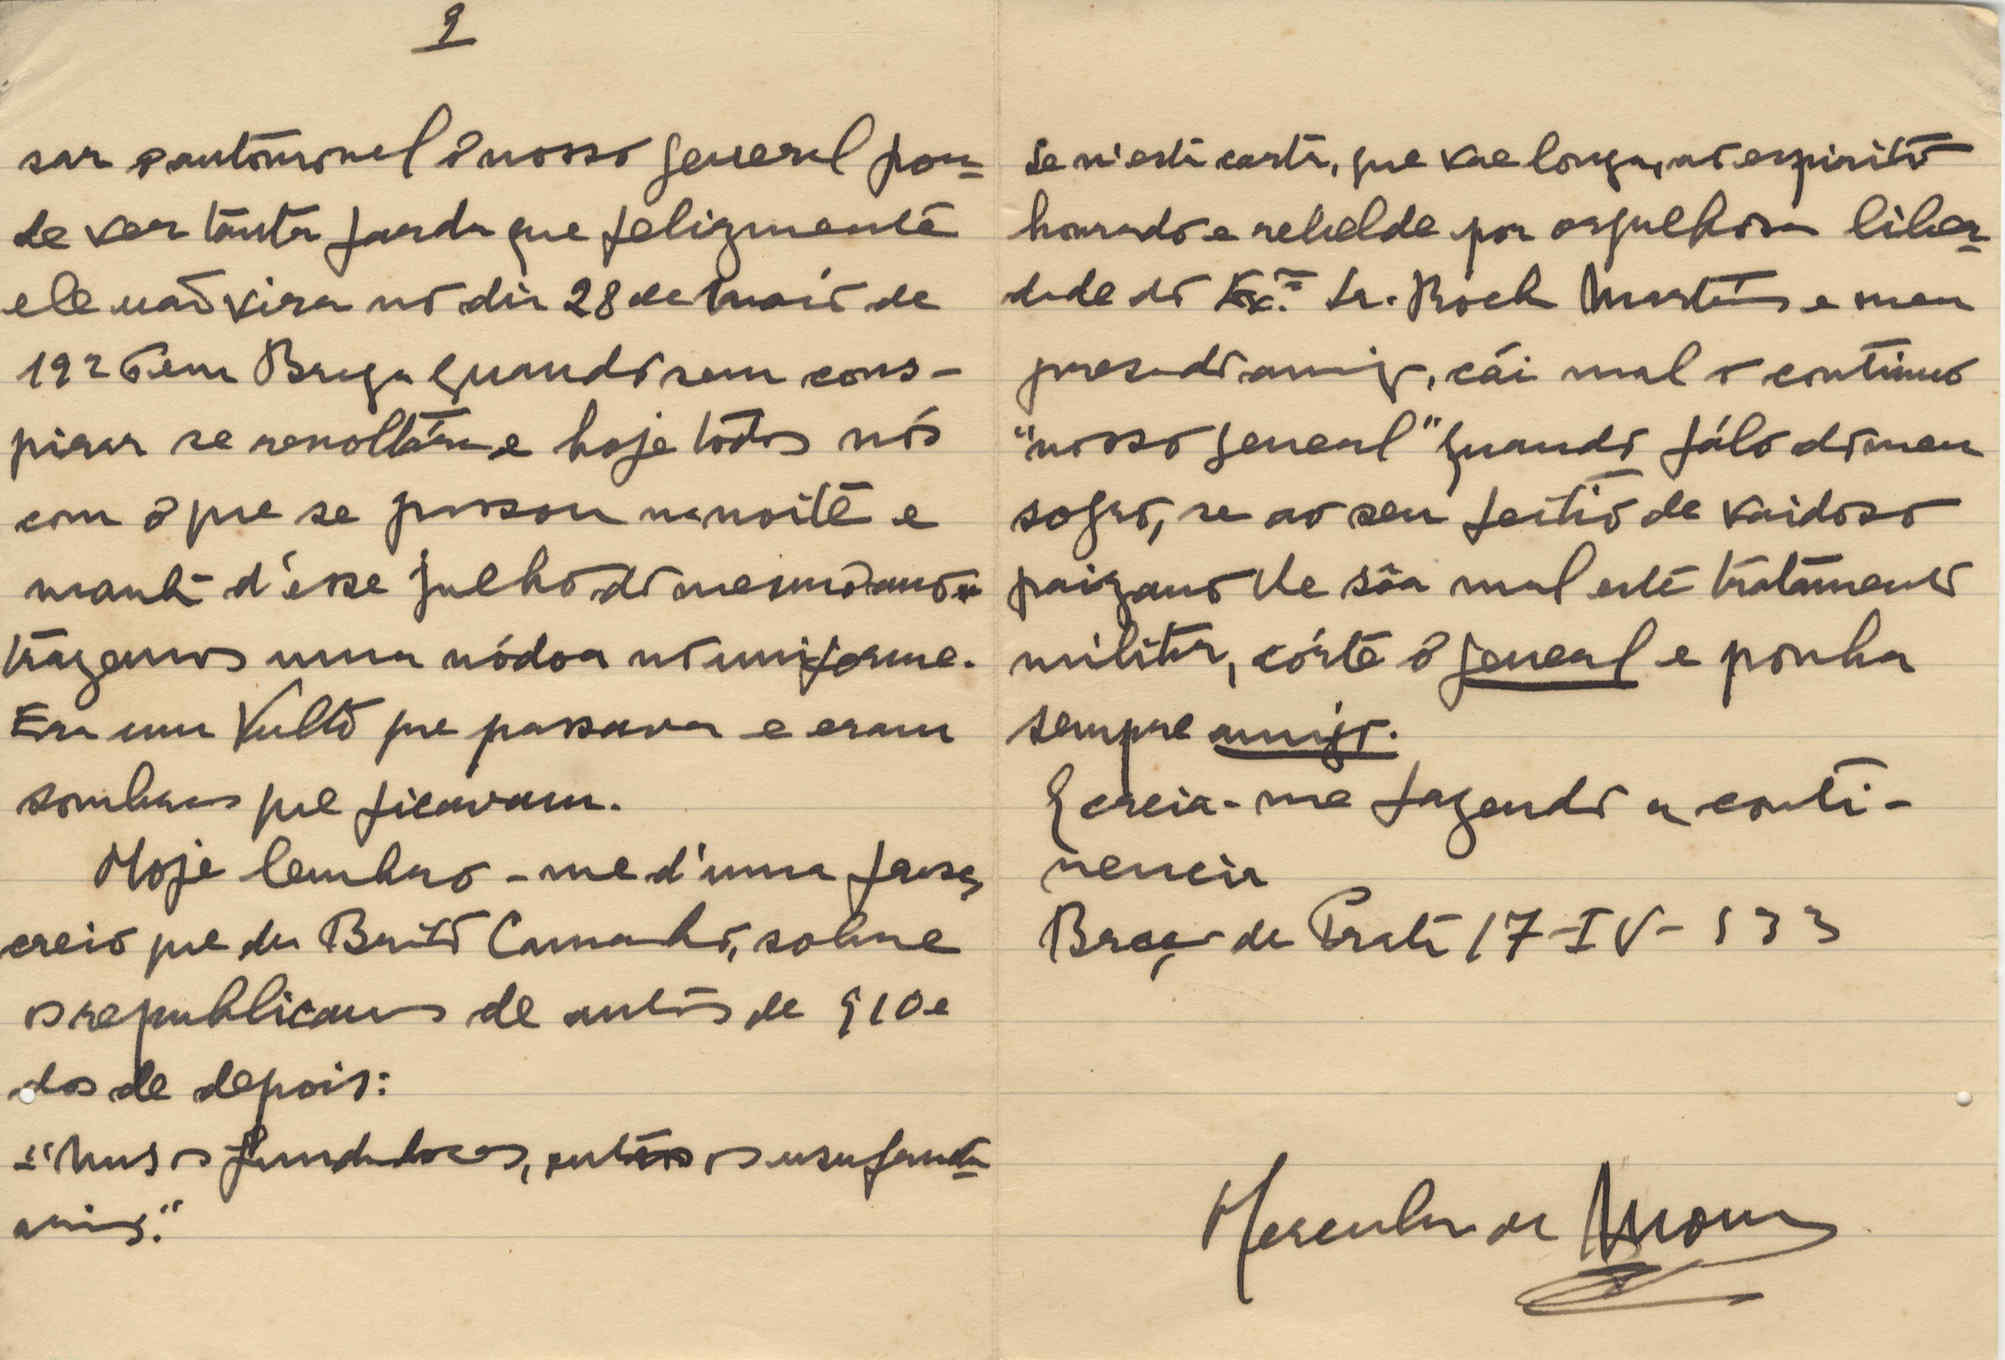 9
sar o automovel o nosso general pou=
de ver tanta farda que felizmente
ele não vira no dia 28 de Maio de
1926 em Braga quando sem cons-
pirar se revoltára e hoje todos nós
com o que se passou na noite e
manhã d'esse Julho do mesmo ano
trazemos uma nódoa no uniforme.
Era um vulto que passava e eram
sombras que ficavam.
Hoje lembro-me d'uma frase,
creio que de Brito Camacho, sobre
os republicanos de antes de 910 e
dos de depois:
"Uns os fundadores, outros os usufructu=
arios."
Se n'esta carta, que vae longa, ao espirito
honrado e rebelde por orgulhosa liber=
dade do Exº. Sr. Roch Martins e meu
presado amigo, cái mal o continuo
"nosso general" quando fálo do meu
sogro, se ao seu feitio de vaidoso
paizano lhe sôa mal este tratamento
militar, córte o general e ponha
sempre amigo.
E creia-me fazendo a conti-
nencia
Braço de Prata 17-IV-933
Hercules de Moura